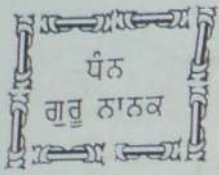 ਧੰਨ
ਗੁਰੂ ਨਾਨਕ